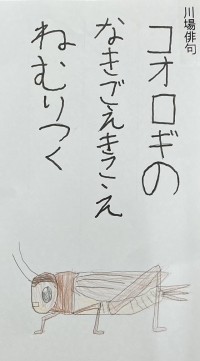 川場俳句
コオロギの
なきごえきこえ
ねむりつく